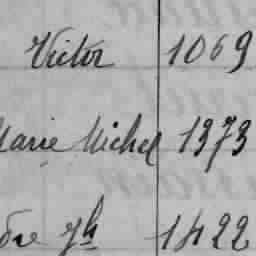 Victor 1069
Marie Michel 1373
Jh 1422